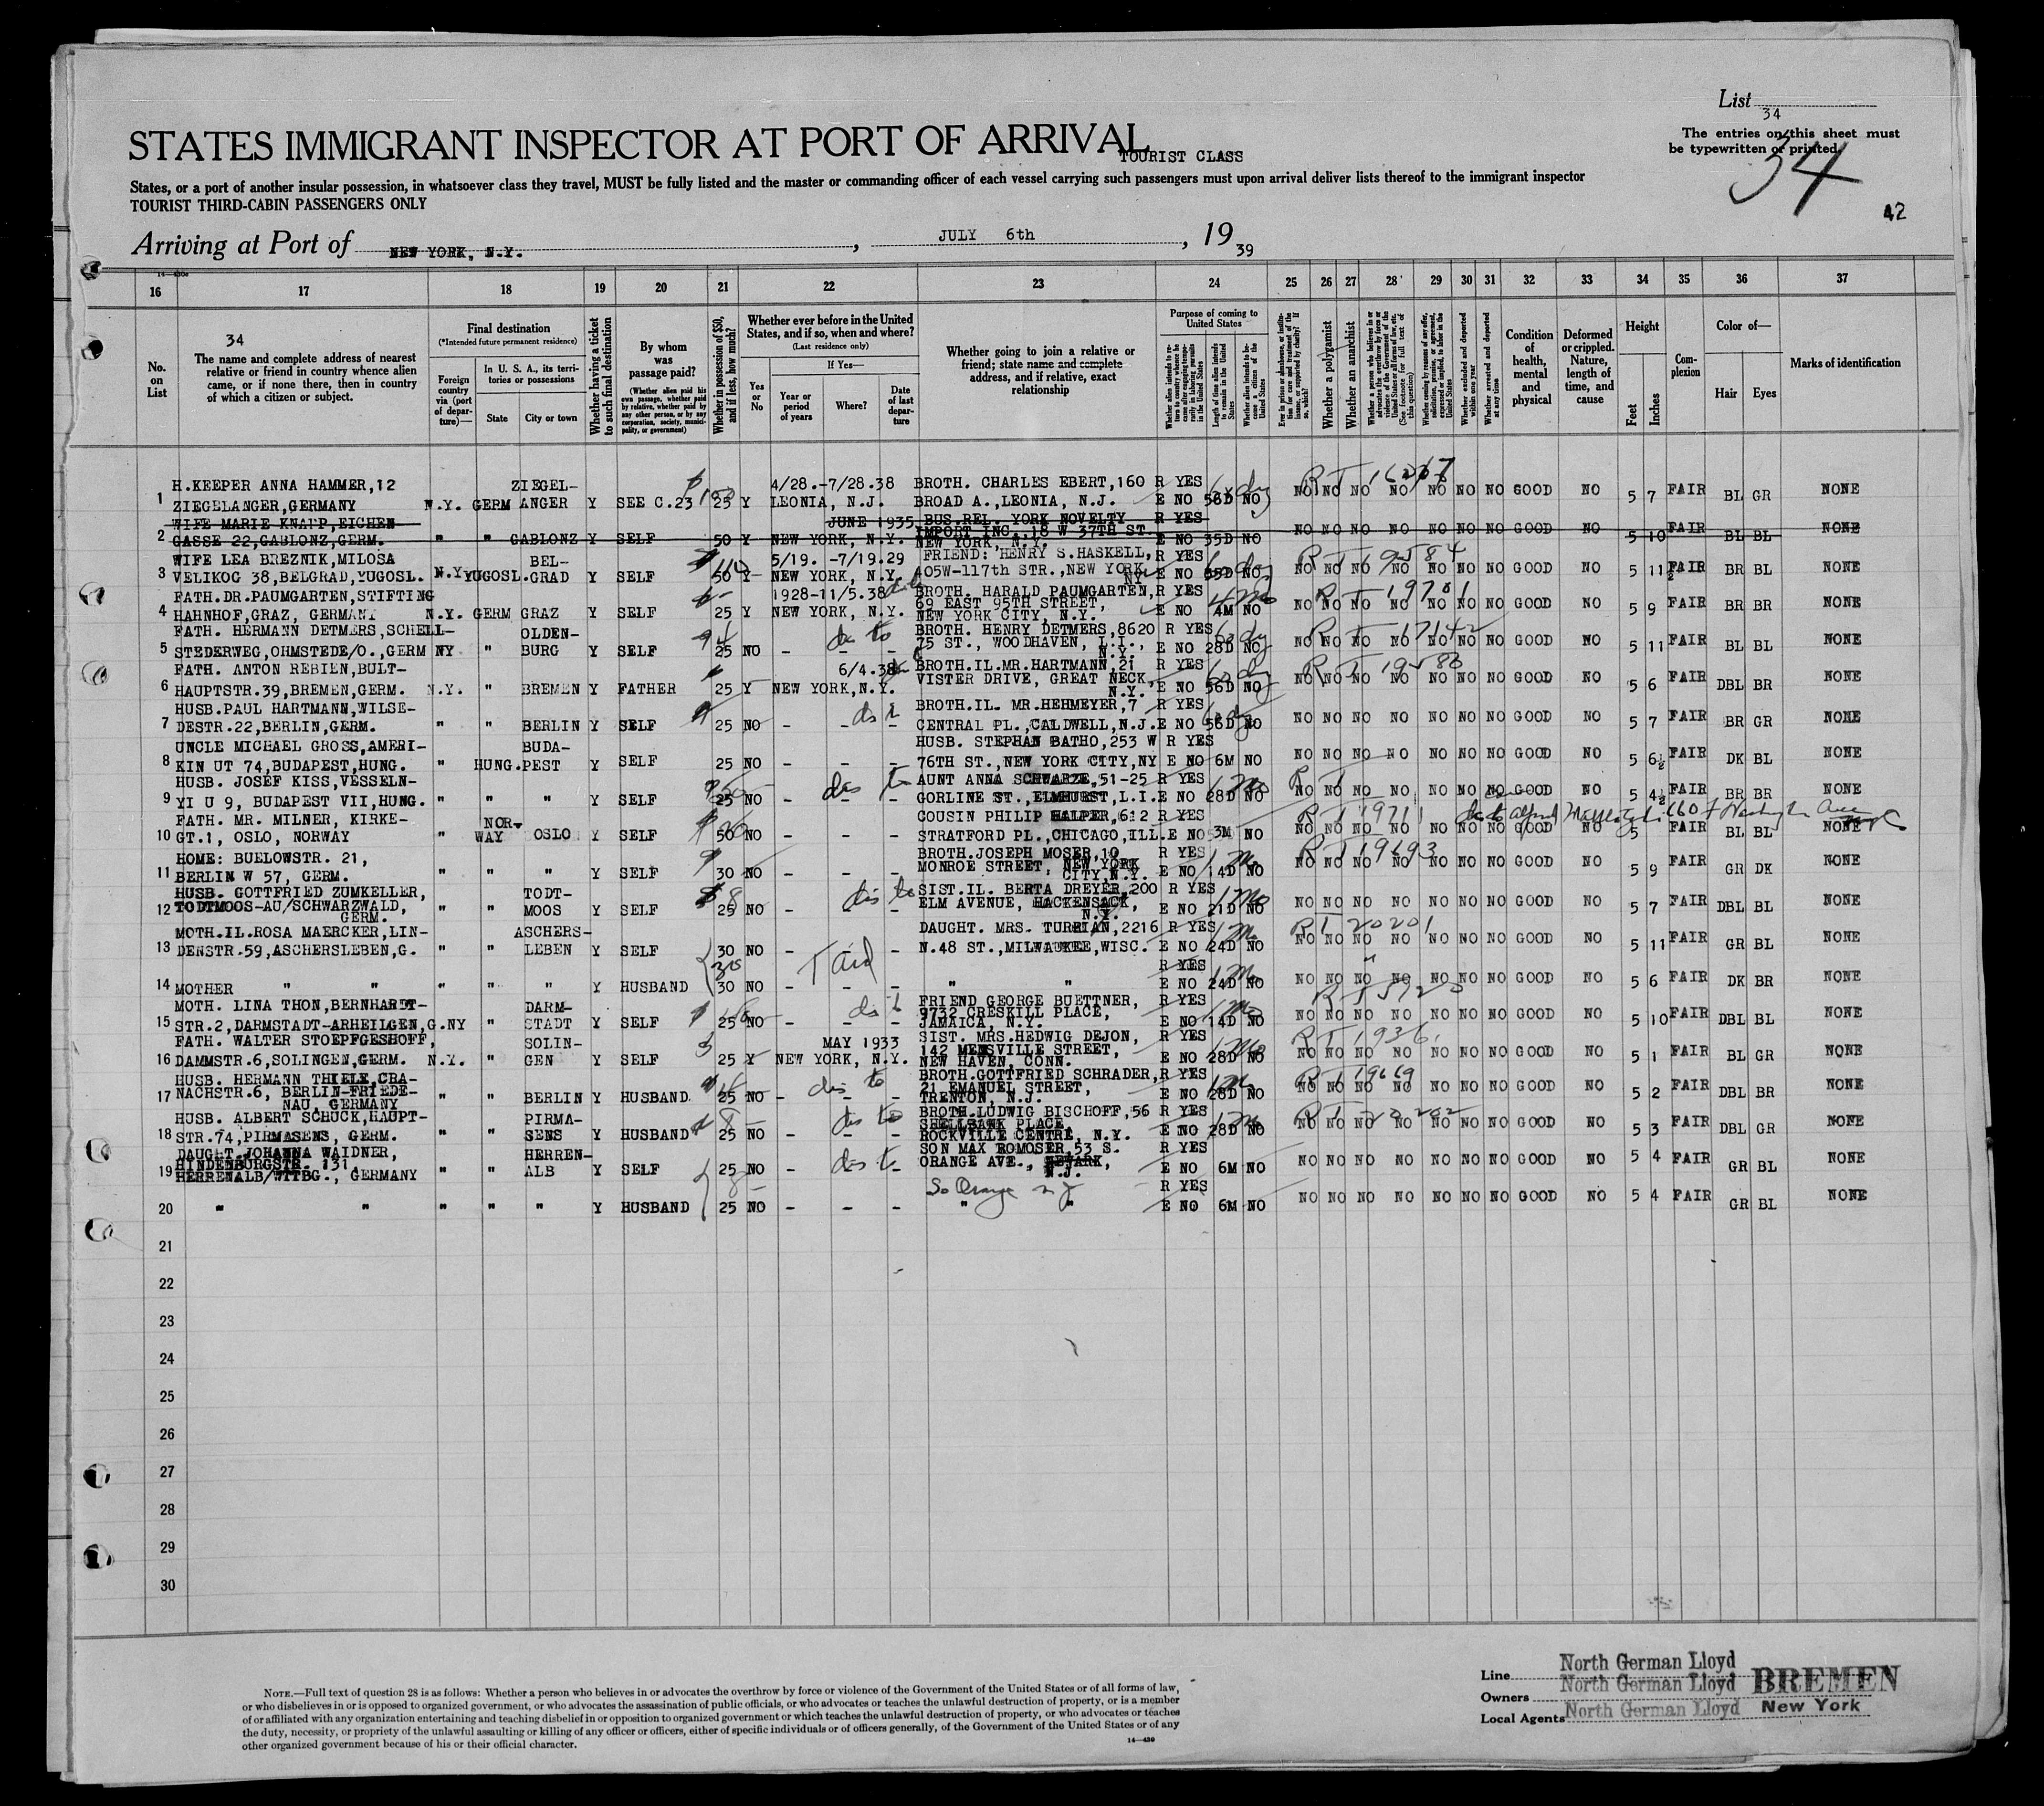 List
34
STATES IMMIGRANT INSPECTOR AT PORT OF ARRIVAL
TOURIST CLASS
The entries on this sheet must
be typewritten or printed.
34
42
States, or a port of another insular possession, in whatsoever class they travel, MUST be fully listed and the master or commanding officer of each vessel carrying such passengers must upon arrival deliver lists thereof to the immigrant inspector
TOURIST THIRD-CABIN PASSENGERS ONLY
Arriving at Port of NEW YORK, N.Y. , JULY 6th , 19 39
16 17 18 19 20 21 22 23 24 25 26 27 28 29 30 31 32 33 34 35 36 37
No. on List
34
The name and complete address of nearest relative or friend in country whence alien came, or if none there, then in country of which a citizen or subject.
Final destination
(*Intended future permanent residence)
Foreign country via (port of departure)—
In U. S. A., its territories or possessions
State City or town
Whether having a ticket to such final destination
By whom was passage paid?
(Whether alien paid his own passage, whether paid by relative, whether paid by any other person, or by any corporation, society, municipality, or government)
Whether in possession of $50, and if less, how much?
Whether ever before in the United States, and if so, when and where?
(Last residence only)
Yes or No
If Yes—
Year or period of years Where? Date of last departure
Whether going to join a relative or friend; state name and complete address, and if relative, exact relationship
Purpose of coming to United States
Length of time alien intends to remain in the United States
Whether alien intends to become a citizen of the United States
Whether a polygamist
Whether an anarchist
Whether excluded and deported within one year
Whether arrested and deported at any time
Condition of health, mental and physical
Deformed or crippled. Nature, length of time, and cause
Height
Feet Inches
Complexion
Color of—
Hair Eyes
Marks of identification
H.KEEPER ANNA HAMMER,12 ZIEGEL- 4/28.-7/28.38 BROTH. CHARLES EBERT,160 R YES
1 ZIEGELANGER,GERMANY N.Y. GERM ANGER Y SEE C.23 25 Y LEONIA, N.J. BROAD A.,LEONIA, N.J. E NO 56D NO NO NO NO NO NO NO NO GOOD NO 5 7 FAIR BL GR NONE
WIFE MARIE KNAPP,EICHEN- JUNE 1935 BUS.REL. YORK NOVELTY R YES
IMPORT INC. 18 W 37TH ST.
2 GASSE 22,GABLONZ,GERM. " " GABLONZ Y SELF 50 Y NEW YORK, N.Y. NEW YORK N.Y. E NO 35D NO NO NO NO NO NO NO NO GOOD NO 5 10 FAIR BL BL NONE
WIFE LEA BREZNIK,MILOSA BEL- 5/19. -7/19.29 FRIEND: HENRY S.HASKELL, R YES
3 VELIKOG 38,BELGRAD,YUGOSL. N.Y. YUGOSL. GRAD Y SELF 50 Y NEW YORK, N.Y. 405W-117th STR.,NEW YORK NY E NO 35D NO NO NO NO NO NO NO NO GOOD NO 5 11½ FAIR BR BL NONE
FATH.DR.PAUMGARTEN,STIFTING 1928-11/5.38 BROTH. HARALD PAUMGARTEN, R YES
69 EAST 95TH STREET,
4 HAHNHOF,GRAZ, GERMANY N.Y. GERM GRAZ Y SELF 25 Y NEW YORK, N.Y. NEW YORK CITY, N.Y. E NO 4M NO NO NO NO NO NO NO NO GOOD NO 5 9 FAIR BR BR NONE
FATH. HERMANN DETMERS,SCHELL- OLDEN- BROTH. HENRY DETMERS,8620 R YES
5 STEDERWEG,OHMSTEDE/O.,GERM NY " BURG Y SELF 25 NO - - - 75 ST., WOODHAVEN, L.I., N.Y. E NO 28D NO NO NO NO NO NO NO NO GOOD NO 5 11 FAIR BL BL NONE
FATH. ANTON REBIEN,BULT- 6/4.38 BROTH.IL.MR.HARTMANN,21 R YES
VISTER DRIVE, GREAT NECK,
6 HAUPTSTR.39,BREMEN,GERM. N.Y. " BREMEN Y FATHER 25 Y NEW YORK,N.Y. N.Y. E NO 56D NO NO NO NO NO NO NO NO GOOD NO 5 6 FAIR DBL BR NONE
HUSB.PAUL HARTMANN,WILSE- BROTH.IL. MR.HEHMEYER,7 R YES
7 DESTR.22,BERLIN,GERM. " " BERLIN Y SELF 25 NO - - - CENTRAL PL.,CALDWELL,N.J. E NO 56D NO NO NO NO NO NO NO NO GOOD NO 5 7 FAIR BR GR NONE
UNCLE MICHAEL GROSS,AMERI- BUDA- HUSB. STEPHAN BATHO,253 W R YES
8 KIN UT 74,BUDAPEST,HUNG. " HUNG. PEST Y SELF 25 NO - - - 76TH ST.,NEW YORK CITY,NY E NO 6M NO NO NO NO NO NO NO NO GOOD NO 5 6½ FAIR DK BL NONE
HUSB. JOSEF KISS,VESSELN- AUNT ANNA SCHWARZE,51-25 R YES
9 YI U 9, BUDAPEST VII,HUNG. " " " Y SELF 25 NO - - - GORLINE ST.,ELMHURST,L.I. E NO 28D NO NO NO NO NO NO NO NO GOOD NO 5 4½ FAIR BR BR NONE
FATH. MR. MILNER, KIRKE- NOR- COUSIN PHILIP HALPER,612 R YES
10 GT.1, OSLO, NORWAY WAY OSLO Y SELF 50 NO - - - STRATFORD PL.,CHICAGO,ILL. E NO 3M NO NO NO NO NO NO NO NO GOOD NO 5 FAIR BL BL NONE
HOME: BUELOWSTR. 21, BROTH.JOSEPH MOSER,10 R YES
11 BERLIN W 57, GERM. " " " Y SELF 30 NO - - - MONROE STREET, NEW YORK CITY,N.Y. E NO 14D NO NO NO NO NO NO NO NO GOOD NO 5 9 FAIR GR DK NONE
HUSB. GOTTFRIED ZUMKELLER, TODT- SIST.IL. BERTA DREYER,200 R YES
12 TODTMOOS-AU/SCHWARZWALD, GERM. " " MOOS Y SELF 25 NO - - - ELM AVENUE, HACKENSACK, E NO 21D NO NO NO NO NO NO NO NO GOOD NO 5 7 FAIR DBL BL NONE
MOTH.IL.ROSA MAERCKER,LIN- ASCHERS- DAUGHT. MRS. TURRIAN,2216 R YES
13 DENSTR.59,ASCHERSLEBEN,G. " " LEBEN Y SELF 30 NO - - - N.48 ST.,MILWAUKEE,WISC. E NO 24D NO NO NO NO NO NO NO NO GOOD NO 5 11 FAIR GR BL NONE
R YES
14 MOTHER " " " " " Y HUSBAND 30 NO - - - " " E NO 24D NO NO NO NO NO NO NO NO GOOD NO 5 6 FAIR DK BR NONE
MOTH. LINA THON,BERNHARDT- DARM- FRIEND GEORGE BUETTNER, R YES
9732 CRESKILL PLACE,
15 STR.2,DARMSTADT-ARHEILGEN,G. NY " STADT Y SELF 25 NO - - - JAMAICA, N.Y. E NO 14D NO NO NO NO NO NO NO NO GOOD NO 5 10 FAIR DBL BL NONE
FATH. WALTER STOEPFGESHOFF, SOLIN- MAY 1933 SIST. MRS.HEDWIG DEJON, R YES
16 DAMMSTR.6,SOLINGEN,GERM. N.Y. " GEN Y SELF 25 Y NEW YORK, N.Y. NEW HAVEN, CONN. E NO 28D NO NO NO NO NO NO NO NO GOOD NO 5 1 FAIR BL GR NONE
HUSB. HERMANN THIELE,CRA- BROTH.GOTTFRIED SCHRADER, R YES
21 EMANUEL STREET,
17 NACHSTR.6, BERLIN-FRIEDE- NAU, GERMANY " " BERLIN Y HUSBAND 25 NO - - - TRENTON, N.J. E NO 28D NO NO NO NO NO NO NO NO GOOD NO 5 2 FAIR DBL BR NONE
HUSB. ALBERT SCHUCK,HAUPT- PIRMA- BROTH.LUDWIG BISCHOFF,56 R YES
SHELLBANK PLACE,
18 STR.74,PIRMASENS, GERM. " " SENS Y HUSBAND 25 NO - - - ROCKVILLE CENTRE, N.Y. E NO 28D NO NO NO NO NO NO NO NO GOOD NO 5 3 FAIR DBL GR NONE
DAUGHT.JOHANNA WAIDNER, HERREN- SON MAX ROMOSER,53 S. R YES
HINDENBURGSTR. 131, ORANGE AVE., NEWARK, N.J.
19 HERRENALB/WTTBG., GERMANY " " ALB Y SELF 25 NO - - - E NO 6M NO NO NO NO NO NO NO NO GOOD NO 5 4 FAIR GR BL NONE
So Orange N J R YES
20 " " " " " Y HUSBAND 25 NO - - - " " E NO 6M NO NO NO NO NO NO NO NO GOOD NO 5 4 FAIR GR BL NONE
21
22
23
24
25
26
27
28
29
30
NOTE.—Full text of question 28 is as follows: Whether a person who believes in or advocates the overthrow by force or violence of the Government of the United States or of all forms of law,
or who disbelieves in or is opposed to organized government, or who advocates the assassination of public officials, or who advocates or teaches the unlawful destruction of property, or is a member
of or affiliated with any organization entertaining and teaching disbelief in or opposition to organized government or which teaches the unlawful destruction of property, or who advocates or teaches
the duty, necessity, or propriety of the unlawful assaulting or killing of any officer or officers, either of specific individuals or of officers generally, of the Government of the United States or of any
other organized government because of his or their official character.
14—430
Line North German Lloyd
Owners North German Lloyd BREMEN
Local Agents North German Lloyd New York